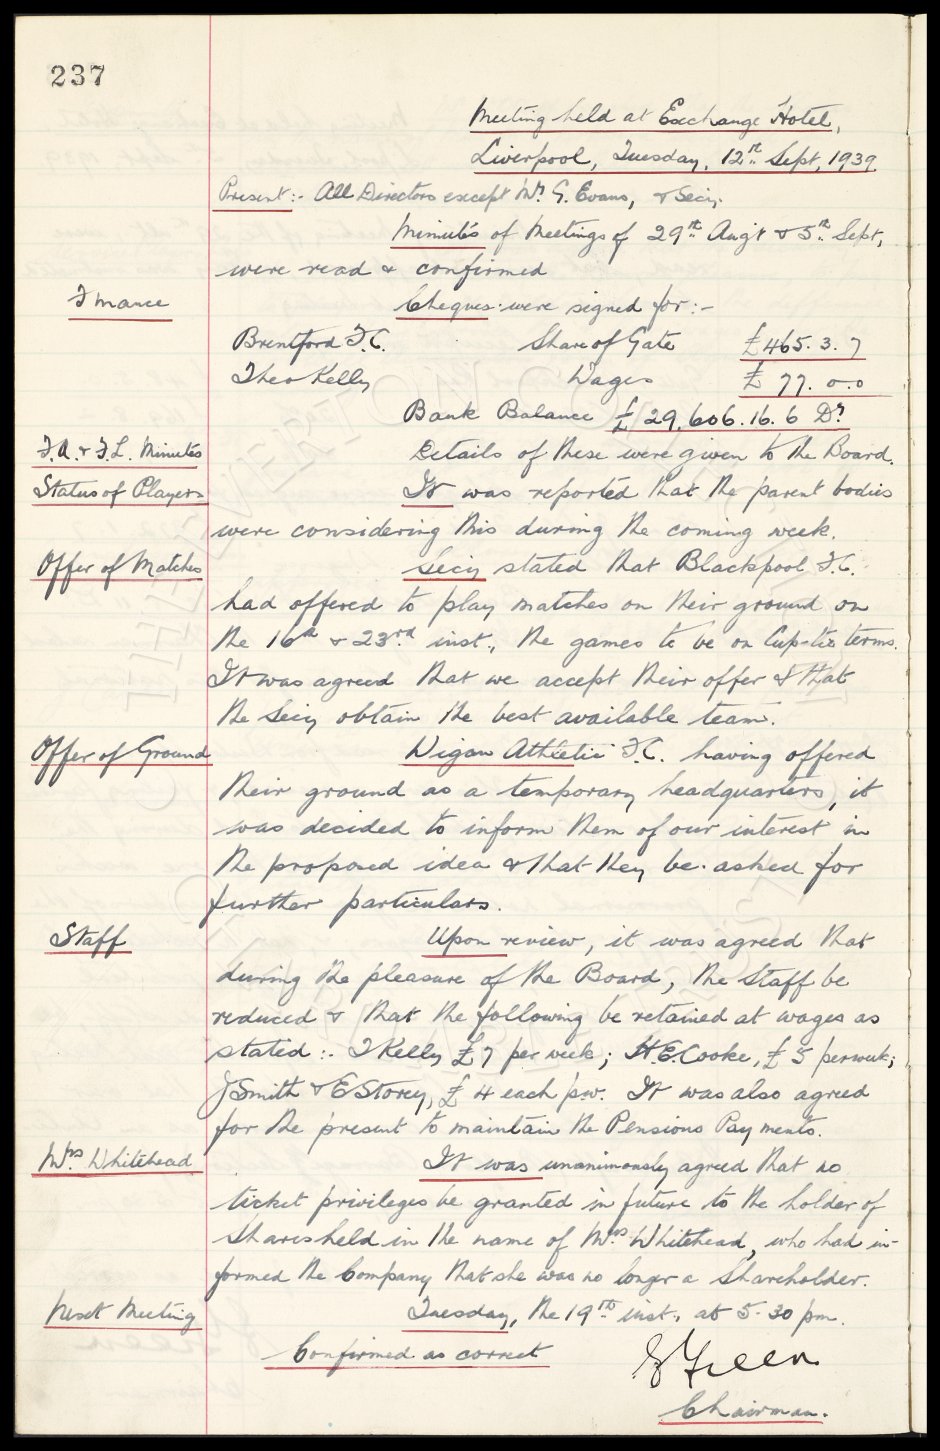 237
Meeting held at Exchange Hotel,
Liverpool, Tuesday, 12th Sept, 1939
Present:- All Directors except Mr G. Evans, & Secy.
Minutes of Meetings of 29th Aug't & 5th Sept,
were read & confirmed
Finance
Cheques were signed for:-
Brentford F.C. Share of Gate £465. 3. 7
Theo Kelly Wages £ 77. 0.0
Bank Balance £29,606.16.6 Dr
F.A. & F.L. Minutes Details of these were given to the Board.
Status of Players It was reported that the parent bodies
were considering this during the coming week.
Offer of Matches Secy stated that Blackpool F.C.
had offered to play matches on their ground on
the 16th & 23rd inst., the games to be on Cup-tie terms.
It was agreed that we accept their offer & that
the Secy obtain the best available team.
Offer of Ground Wigan Athletic F.C. having offered
their ground as a temporary headquarters, it
was decided to inform them of our interest in
the proposed idea & that they be asked for
further particulars.
Staff Upon review, it was agreed that
during the pleasure of the Board, the Staff be
reduced & that the following be retained at wages as
stated:- T Kelly £7 per week; H.E. Cooke, £5 per week;
J Smith & E Storey, £4 each p.w. It was also agreed
for the present to maintain the Pensions Payments.
Mrs Whitehead It was unanimously agreed that no
ticket privileges be granted in future to the holder of
Shares held in the name of Mrs Whitehead, who had in-
formed the Company that she was no longer a Shareholder.
Next Meeting Tuesday, the 19th inst., at 5-30 pm.
Confirmed as correct
Green
Chairman.